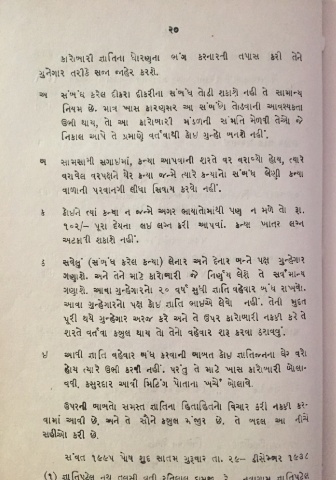 ૨૦
કારોબારી જ્ઞાતિના ધોરણના ભંગ કરનારની તપાસ કરી તેને
ગુનેગાર તરીકે સજા જાહેર કરશે.
અ સંબંધ કરેલ દીકરા દીકરીના સંબંધ તોડી શકાશે નહીં તે સામાન્ય
નિયમ છે. માત્ર ખાસ કારણસર આ સંબંધ તોડવાની આવશ્યકતા
ઉભી થાય, તો આ કારોબારી મંડળની સંમતિ મેળવી તેઓ જે
નિકાલ આપે તે પ્રમાણે વર્તવાથી કોઇ ગુન્હો બનશે નહીં.
બ સામસામી સગાઇમાં, કન્યા આપવાની શરતે વર વરાવ્યો હોય, ત્યારે
વરાવેલ વરપક્ષને ઘેર કન્યા જન્મે ત્યારે કન્યાનો સંબંધ લેણી કન્યા
વાળાની પરવાનગી લીધા સિવાય કરવો નહીં.
ક કોઇને ત્યાં કન્યા ન જન્મે અગર ભાયાતોમાંથી પણ ન મળે તો રૂા.
૧૦૨/- પુરા દેવના લઇ લગ્ન કરી આપવાં. કન્યા ખાતર લગ્ન
અટકાવી શકાશે નહીં.
ડ સવેલું (સંબંધ કરેલ કન્યા) લેનાર અને દેનાર બન્ને પક્ષ ગુન્હેગાર
ગણાશે. અને તેને માટે કારોબારી જે નિર્ણય લેશે તે સર્વમાન્ય
ગણાશે. આવા ગુન્હેગારનો ૨૦ વર્ષ સુધી જ્ઞાતિ વહેવાર બંધ રાખવો.
આવા ગુન્હેગારનો પક્ષ કોઇ જ્ઞાતિ ભાઇએ લેવો નહીં. તેની મુદત
પૂરી થયે ગુન્હેગાર અરજ કરે અને તે ઉપર કારોબારી નકકી કરે તે
શરતે વર્તવા કબુલ થાય તો તેનો વહેવાર શરૂ કરવા ઠરાવવું.
ઇ આવી જ્ઞાતિ વહેવાર બંધ કરવાની બાબત કોઇ જ્ઞાતિજનના ઘેર વરો
હોય ત્યારે ઉભી કરવી નહીં. પરંતુ તે માટે ખાસ કારોબારી બોલા-
વવી. કસુરદાર આવી મિટિંગ પોતાના ખર્ચે બોલાવે.
ઉપરની બાબતો સમસ્ત જ્ઞાતિના હિતાહિતનો વિચાર કરી નકકી કરવા-
માં આવી છે, અને તે સૌને કબુલ મંજુર છે, તે બદલ આ નીચે
સહીઓ કરી છે.
સંવત ૧૯૯૫ પોષ શુદ સાતમ ગુરુવાર તા. ૨૯- ડીસેમ્બર ૧૯૩૮
(૧) જ્ઞાતિપટેલ